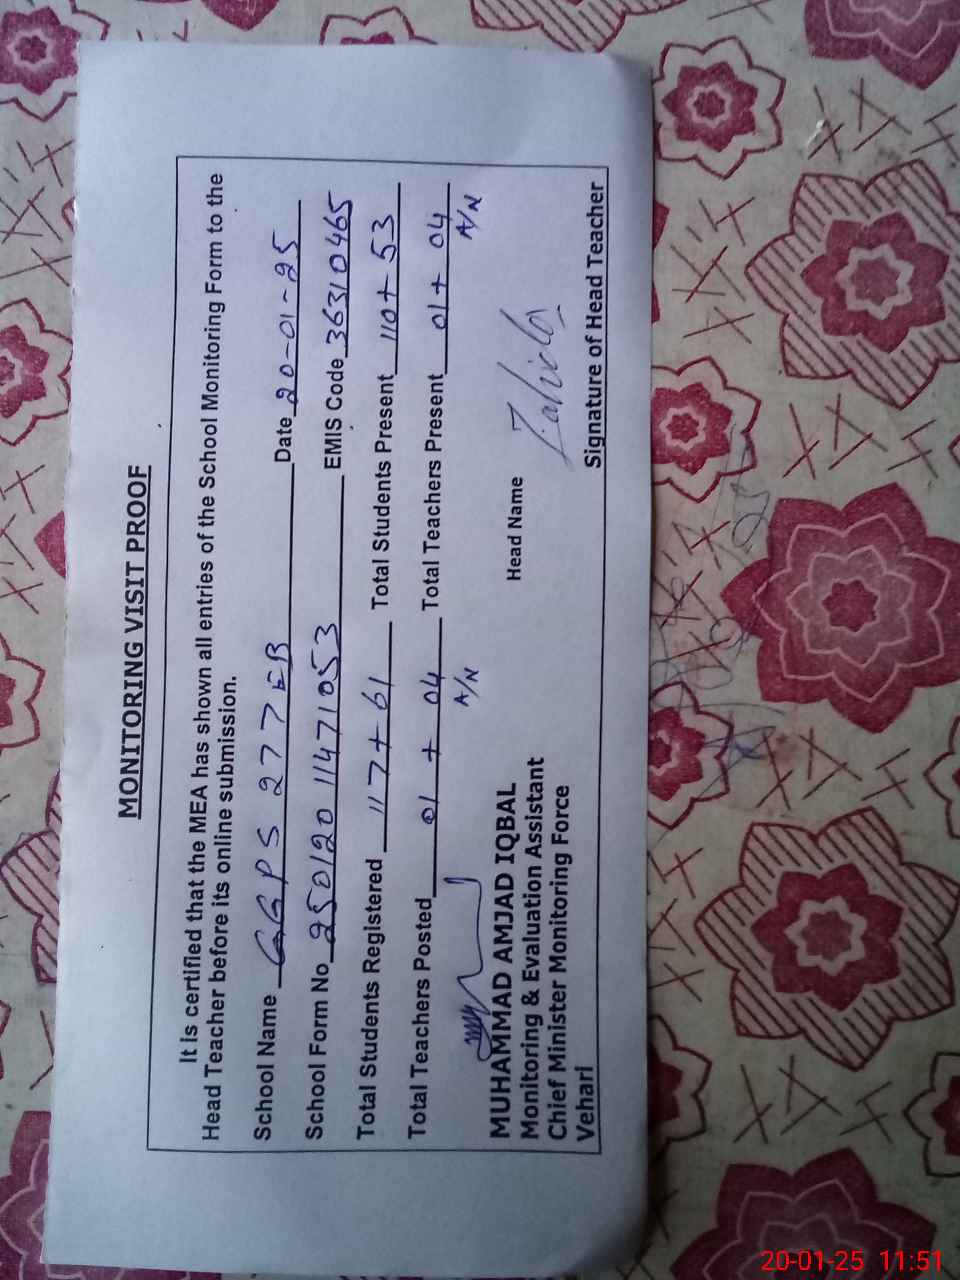 MONITORING VISIT PROOF
It is certified that the MEA has shown all entries of the School Monitoring Form to the
Head Teacher before its online submission.
School Name GGPS 277 EB Date 20-01-25
School Form No 250120 11471053 EMIS Code 36310465
Total Students Registered 117+61 Total Students Present 110+53
Total Teachers Posted 01 + 04 Total Teachers Present 01+ 04
A/N A/N
MUHAMMAD AMJAD IQBAL Head Name
Monitoring & Evaluation Assistant
Chief Minister Monitoring Force Zahida
Vehari Signature of Head Teacher
20-01-25 11:51